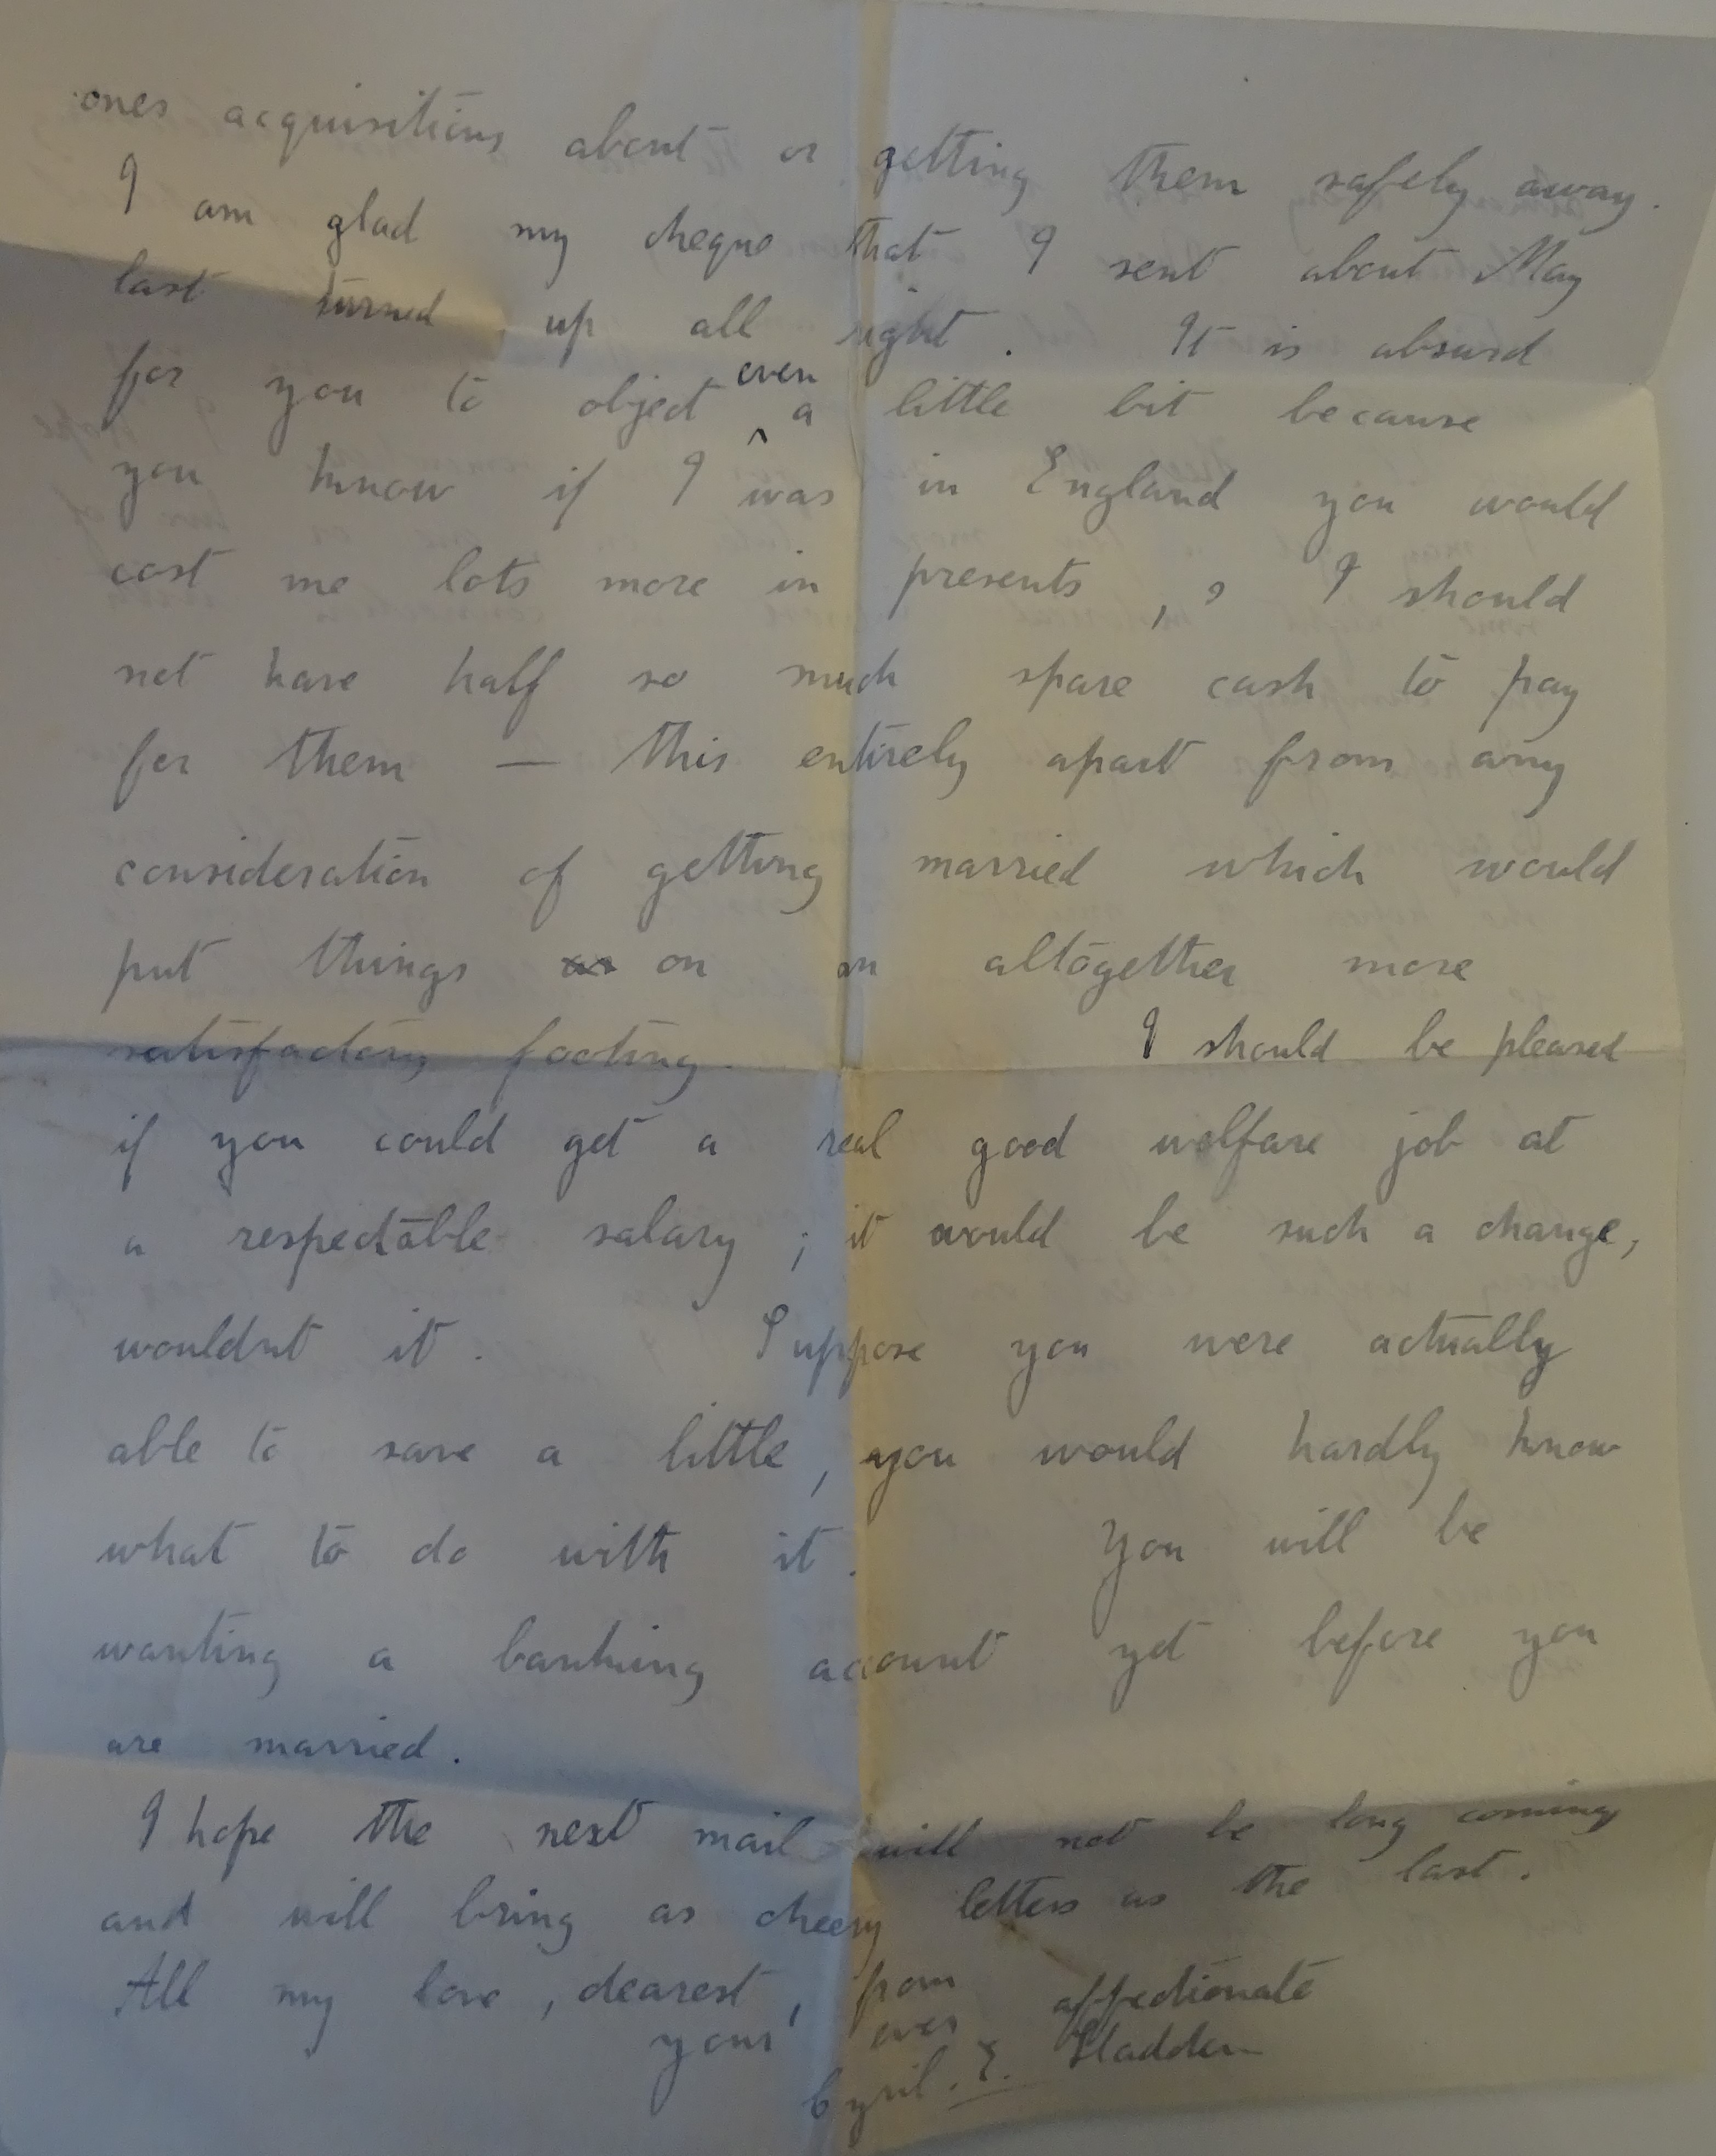 ones acquisitions about or getting them safely away.
I am glad my cheque that I sent about May
last turned up all right. It is absurd
for you to object even a little bit because
you know if I was in England you would
cost me lots more in presents, & I should
not have half so much spare cash to pay
for them — this entirely apart from any
consideration of getting married which would
put things on an altogether more
satisfactory footing. I should be pleased
if you could get a real good welfare job at
a respectable salary; it would be such a change,
wouldnt it. Suppose you were actually
able to save a little, you would hardly know
what to do with it. You will be
wanting a banking account yet before you
are married.
I hope the next mail will not be long coming
and will bring as cheery letters as the last.
All my love, dearest, from
your ever affectionate
Cyril. E. Sladden